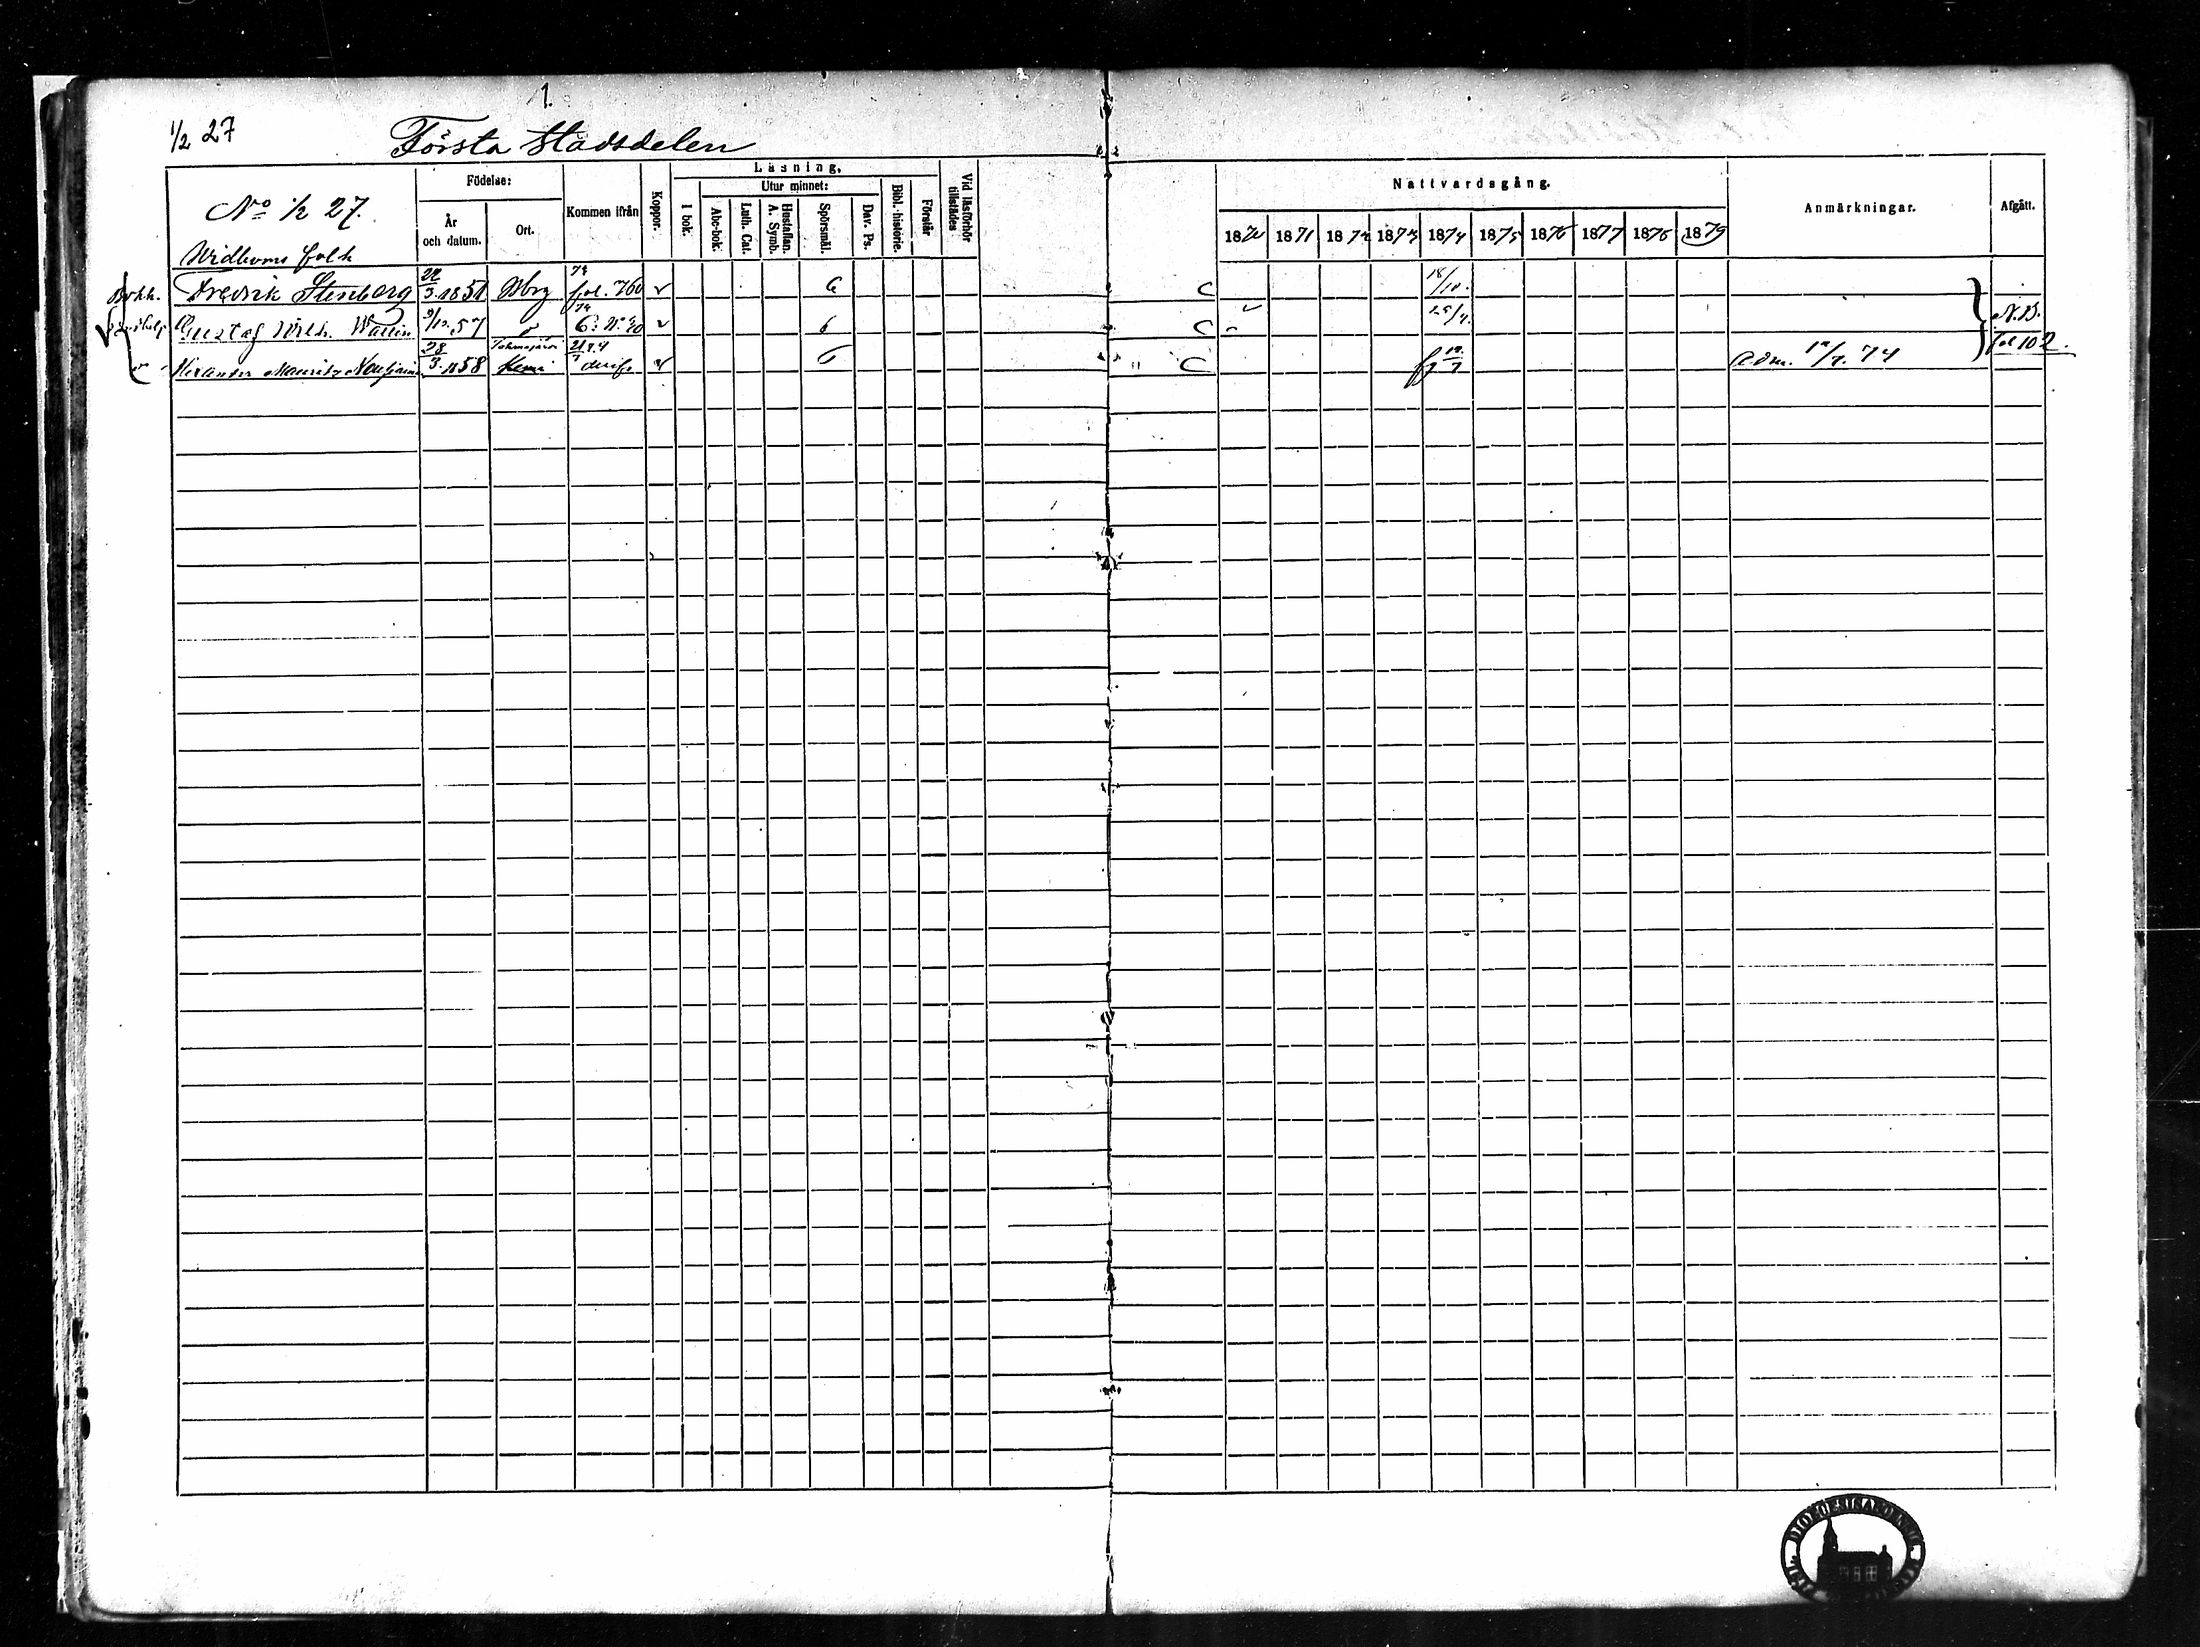 1.
1/2 27 Första Stadsdelen
Födelse: Kommen ifrån Koppor. Läsning. Vid läsförhör tillstädes Nattvardsgång. Anmärkningar. Afgått.
År och datum. Ort. I bok. Utur minnet: Bibl. historie. Förstår
Abc-bok. Luth. Cat. Hustaflan. A. Symb. Spörsmål. Dav. Ps.
1870 1871 1872 1873 1874 1875 1876 1877 1878 1879
No 1/2 27.
Widboms folk
Bokh. Fredrik Stenberg 22/3 1851 Wbrg 74 fol. 760 v 6 C 18/10.
Gustaf Wilh. Wallin 9/12 57 74 v 6 C 25/4. N.B.
Alexander Mauritz 28/3 1858 Kemi 21 74 v 6 " C 12/7 Adm. 12/7. 74 fol 102.